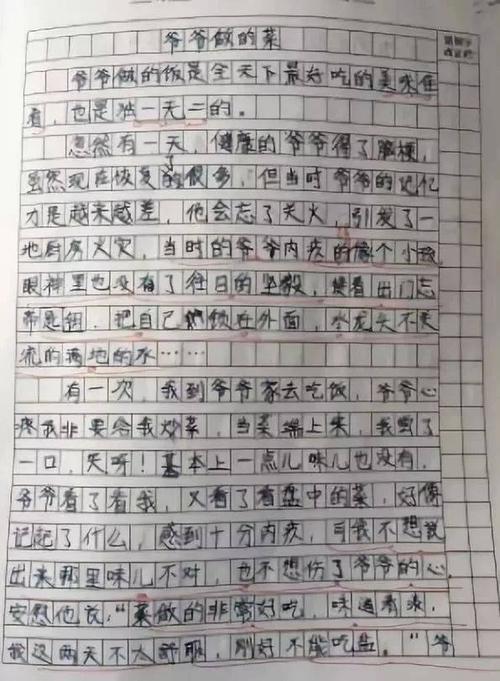 爷爷做的菜
爷爷做的饭是全天下最好吃的美味佳
肴，也是独一无二的。
忽然有一天，健康的爷爷得了脑梗，
虽然现在恢复了很多，但当时爷爷的记忆
力是越来越差，他会忘了关火，引发了一
地厨房火灾，当时的爷爷内疚的像个小孩
眼神里也没有了往日的坚毅，接着出门忘
带匙钥，把自己锁在外面，水龙头不关
流的满地的水……
有一次，我到爷爷家去吃饭，爷爷心
疼我非要给我炒菜，当菜端上来，我尝了
一口，天呀！基本上一点儿味儿也没有，
爷爷看了看我，又看了看盘中的菜，好像
记起了什么，感到十分内疚，可我不想说
出来那里味儿不对，也不想伤了爷爷的心，
安慰他说：“菜做的非常好吃，味道
我这两天不太舒服，刚好不能吃盐。”爷